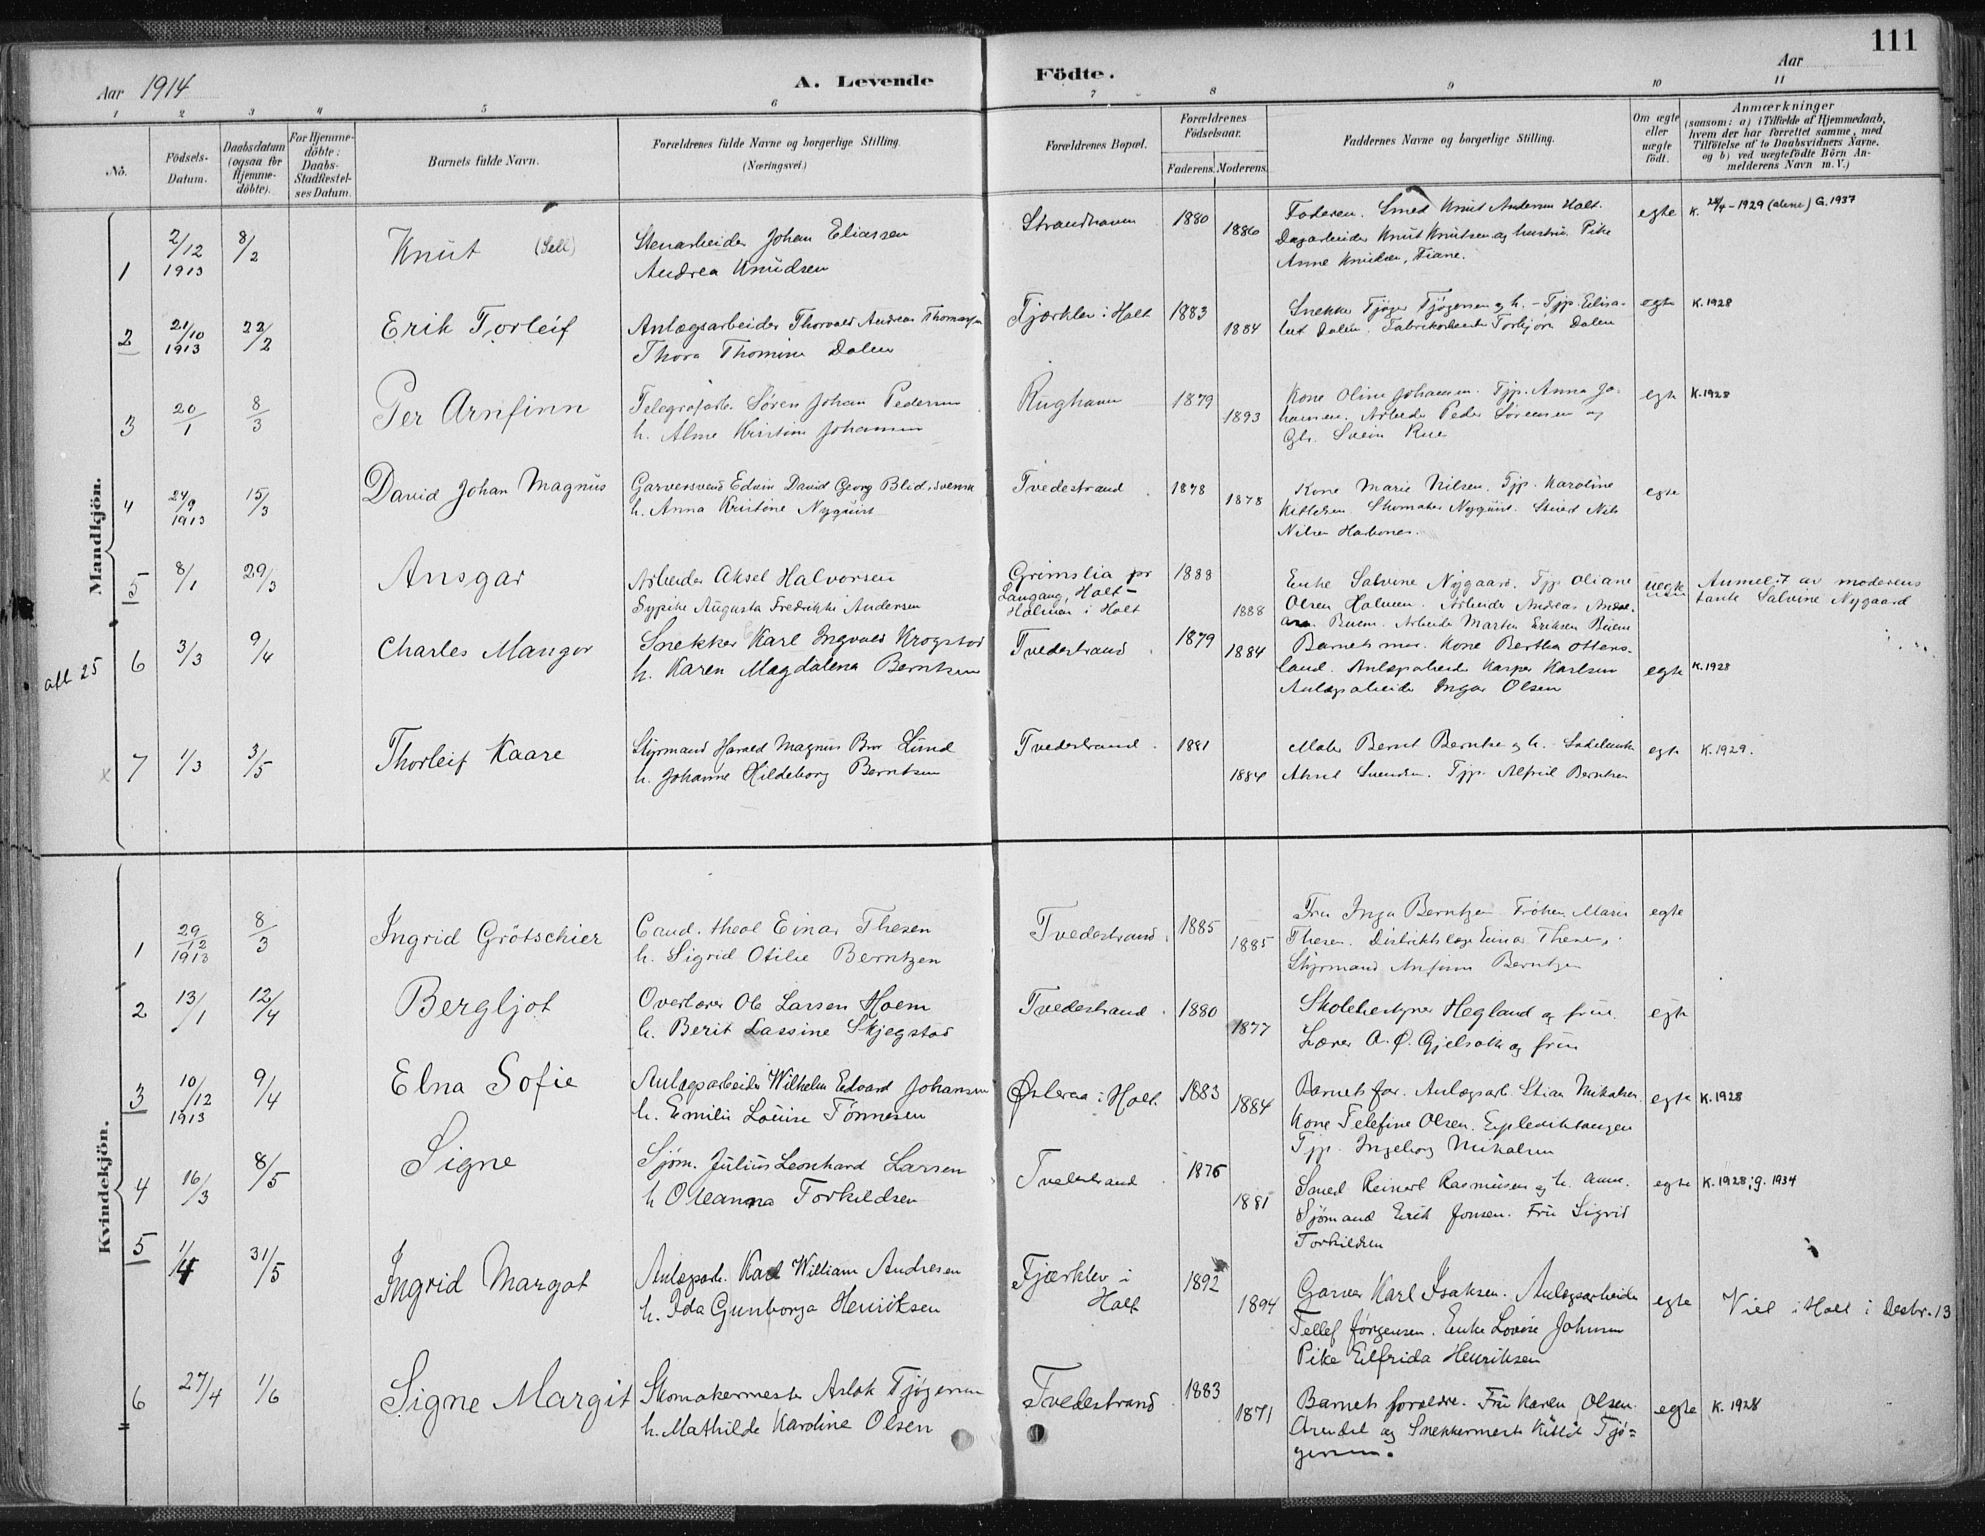 111
Aar 1914
A. Levende Födte.
Aar
1 2 3 4 5 6 7 8 9 10 11
No.
Födsels-Datum.
Daabsdatum (ogsaa for Hjemme-döbte).
For Hjemme-döbte: Daabs-Stadfæstel-ses Datum.
Barnets fulde Navn.
Forældrenes fulde Navne og borgerlige Stilling. (Næringsvei.)
Forældrenes Bopæl.
Forældrenes Födselsaar.
Faderens. Moderens.
Faddernes Navne og borgerlige Stilling.
Om ægte eller uægte födt.
Anmærkninger
(saasom: a) i Tilfælde af Hjemmedaab,
hvem der har forrettet samme, med
Tilföielse af to Daabsvidners Navne,
og b) ved uægtefödte Börn An-
melderens Navn m. V.)
Mandkjön.
1 2/12 1913 8/2 Knut
Stenarbeider Johan Eliassen
Andrea Knudsen
Strandhavn 1880 1886
Faderen. Smed Knut Andersen Holt.
Dagarbeider Knut Knutsen og hustru. Pike
Anne Knudsen, Fiane.
egte K. 1929 (alene) G. 1937
2 21/10 1913 22/2 Erik Torleif
Anlægsarbeider Thorvald Andreas Thomassen
Thora Thomine Dalen
Fjærklev i Holt 1883 1884
Snekker Tjøger Tjøgersen og h. - Tjp. Elisa-
bet Dalen. Torbjørn Dalen
egte K. 1928
3 20/1 8/3 Per Arnfinn
Telegrafarb. Søren Johan Pedersen
h. Alma Kristine Johansen
Rughavn 1879 1893
Kone Oline Johansen. Tjp. Anna Jo-
hansen. Arbeider Peder Sørensen og
Svein Rue
egte K. 1928
4 24/9 1913 15/3 David Johan Magnus
Garversvend Edvin David Georg Blid, svensk
h. Anna Kristine Nyquist
Tvedestrand 1878 1878
Kone Marie Nilsen. Tjp. Karoline
Kittelsen. Skomaker Nyquist. Smed Nils
Nilsen
egte
5 8/1 29/3 Ansgar
Arbeider Aksel Halvorsen
Sypike Augusta Fredrikke Andersen
Grimslia pr
Langang, Holt -
Holmen i Holt
1888 1888
Enke Salvine Nygaard. Tjp. Oliane
Olsen Holmen. Arbeider Andreas
Arbeider Martin Eriksen
uegte
Anmeldt av moderens
tante Salvine Nygaard
aft 25
6 3/3 9/4 Charles Mangor
Snekker Karl Ingvald Krogstad
h. Karen Magdalena Berntsen
Tvedestrand 1879 1884
Barnets mor. Kone Bertha Otters-
land. Anlægsarbeider Kasper Karlsen
Anlægsarbeider Olsen
egte K. 1928
x 7 1/3 3/5 Thorleif Kaare
Styrmand Harald Magnus Lund
h. Johanne Hildeborg Berntsen
Tvedestrand 1881 1884
Maler Bernt Berntsen og h.
Aksel Svendsen. Tjp. Alfred Berntsen
egte K. 1929.
Kvindekjön.
1 29/12 1913 8/3 Ingrid Grötschier
Cand. theol Einar Thesen
h. Sigrid Otilie Berntzen
Tvedestrand. 1885 1885
Fru Inga Berntzen Frøken Marie
Thesen. Distriktslæge Einar Thesen.
Styrmand Anfinn Berntzen
egte
2 13/1 12/4 Bergljot
Overlærer Ole Larsen Hoem
h. Berit Lassine Skjegstad
Tvedestrand 1880 1877
Skolebestyrer Hegland og frue.
Lærer A. Ø. Gjelsvik og frue
egte
3 10/12 1913 9/4 Elna Sofie
Anlægsarbeider Wilhelm Edvard Johansen
h. Emilie Louise Tønnesen
Østeraa i Holt. 1883 1884
Barnets far. Anlægsarb. Stian Mikalsen.
Kone Telefine Olsen.
Tjp. Ingeborg Mikalsen
egte K. 1928
4 16/3 8/5 Signe
Sjøm. Julius Leonhard Larsen
h. Oleanna Torkildsen
Tvedestrand 1876 1881
Smed Reinert Rasmussen og h.
Sjømand Erik Jonsen. Fru Sigrid
Torkildsen
egte K. 1928; g. 1934
5 1/4 31/5 Ingrid Margot
Anlægsarb. Karl William Andresen
h. Ida Gunborga Henriksen
Fjærklev i
Holt
1892 1894
Garver Karl Isaksen. Anlægsarbeider
Tellef Jørgensen. Enke Lovise Johnsen
Pike Elfrida Henriksen
egte Viet i Holt i Desbr. 13
6 27/4 1/6 Signe Margit
Skomakermester Aslak Tjøgersen
h. Mathilde Karoline Olsen
Tvedestrand 1883 1871
Barnets forældre. Fru Karen Olsen.
Arendal og Snekkermester Kittil Tjø-
gersen.
egte K. 1928